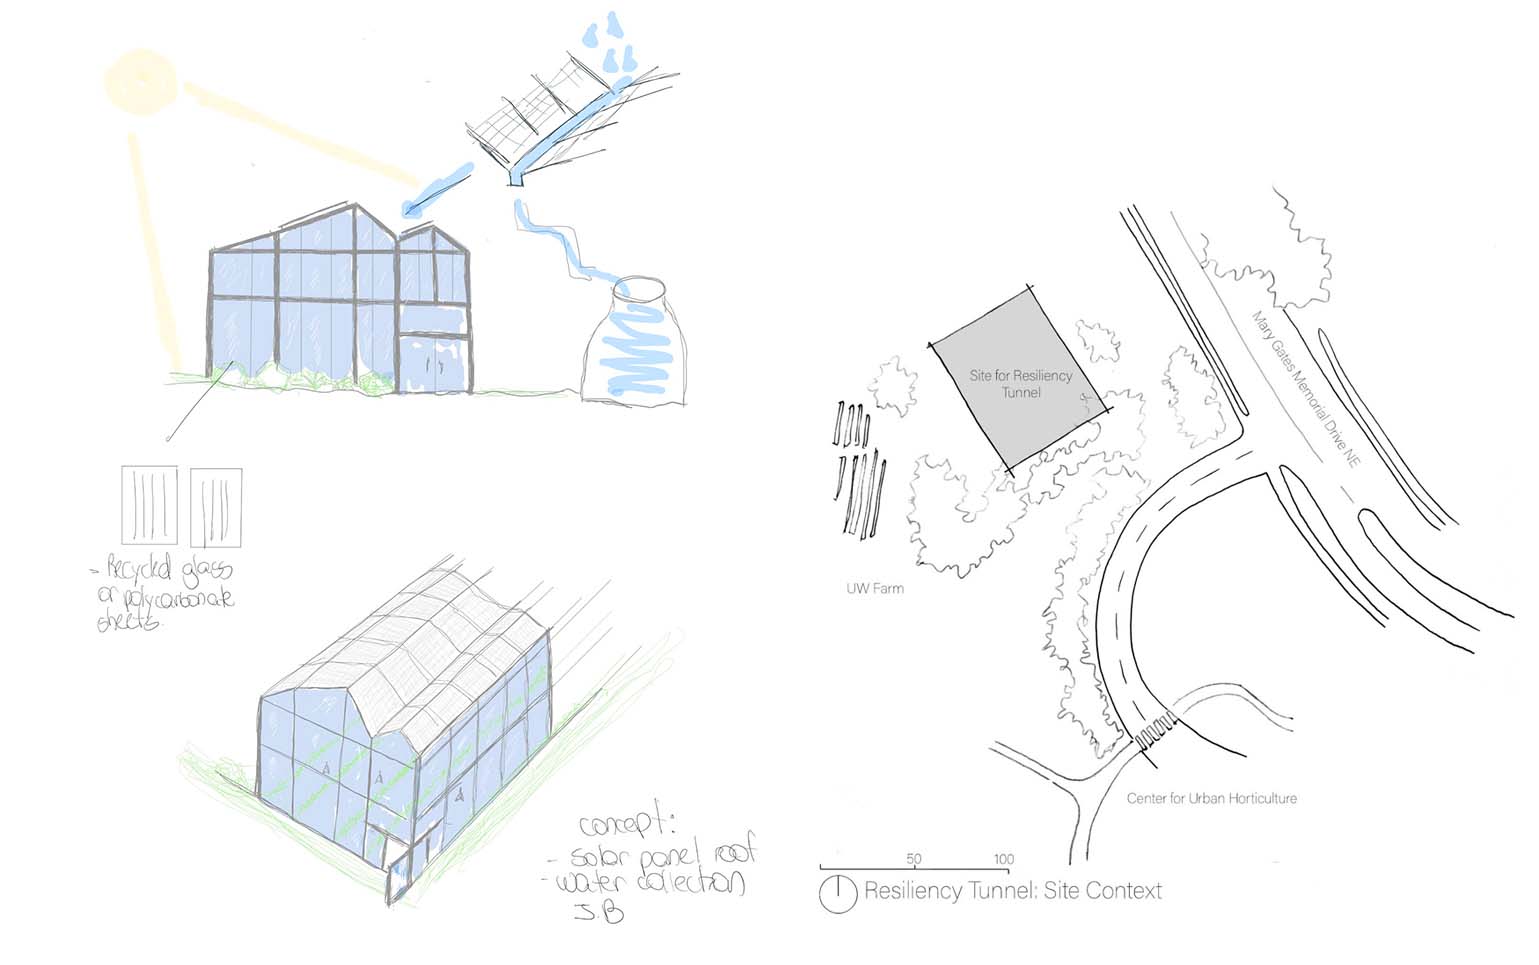 - Recycled glass
or polycarbonate
sheets.
concept:
- solar panel roof
- water collection
J.B
Site for Resiliency
Tunnel
Mary Gates Memorial Drive NE
UW Farm
Center for Urban Horticulture
50
100
Resiliency Tunnel: Site Context